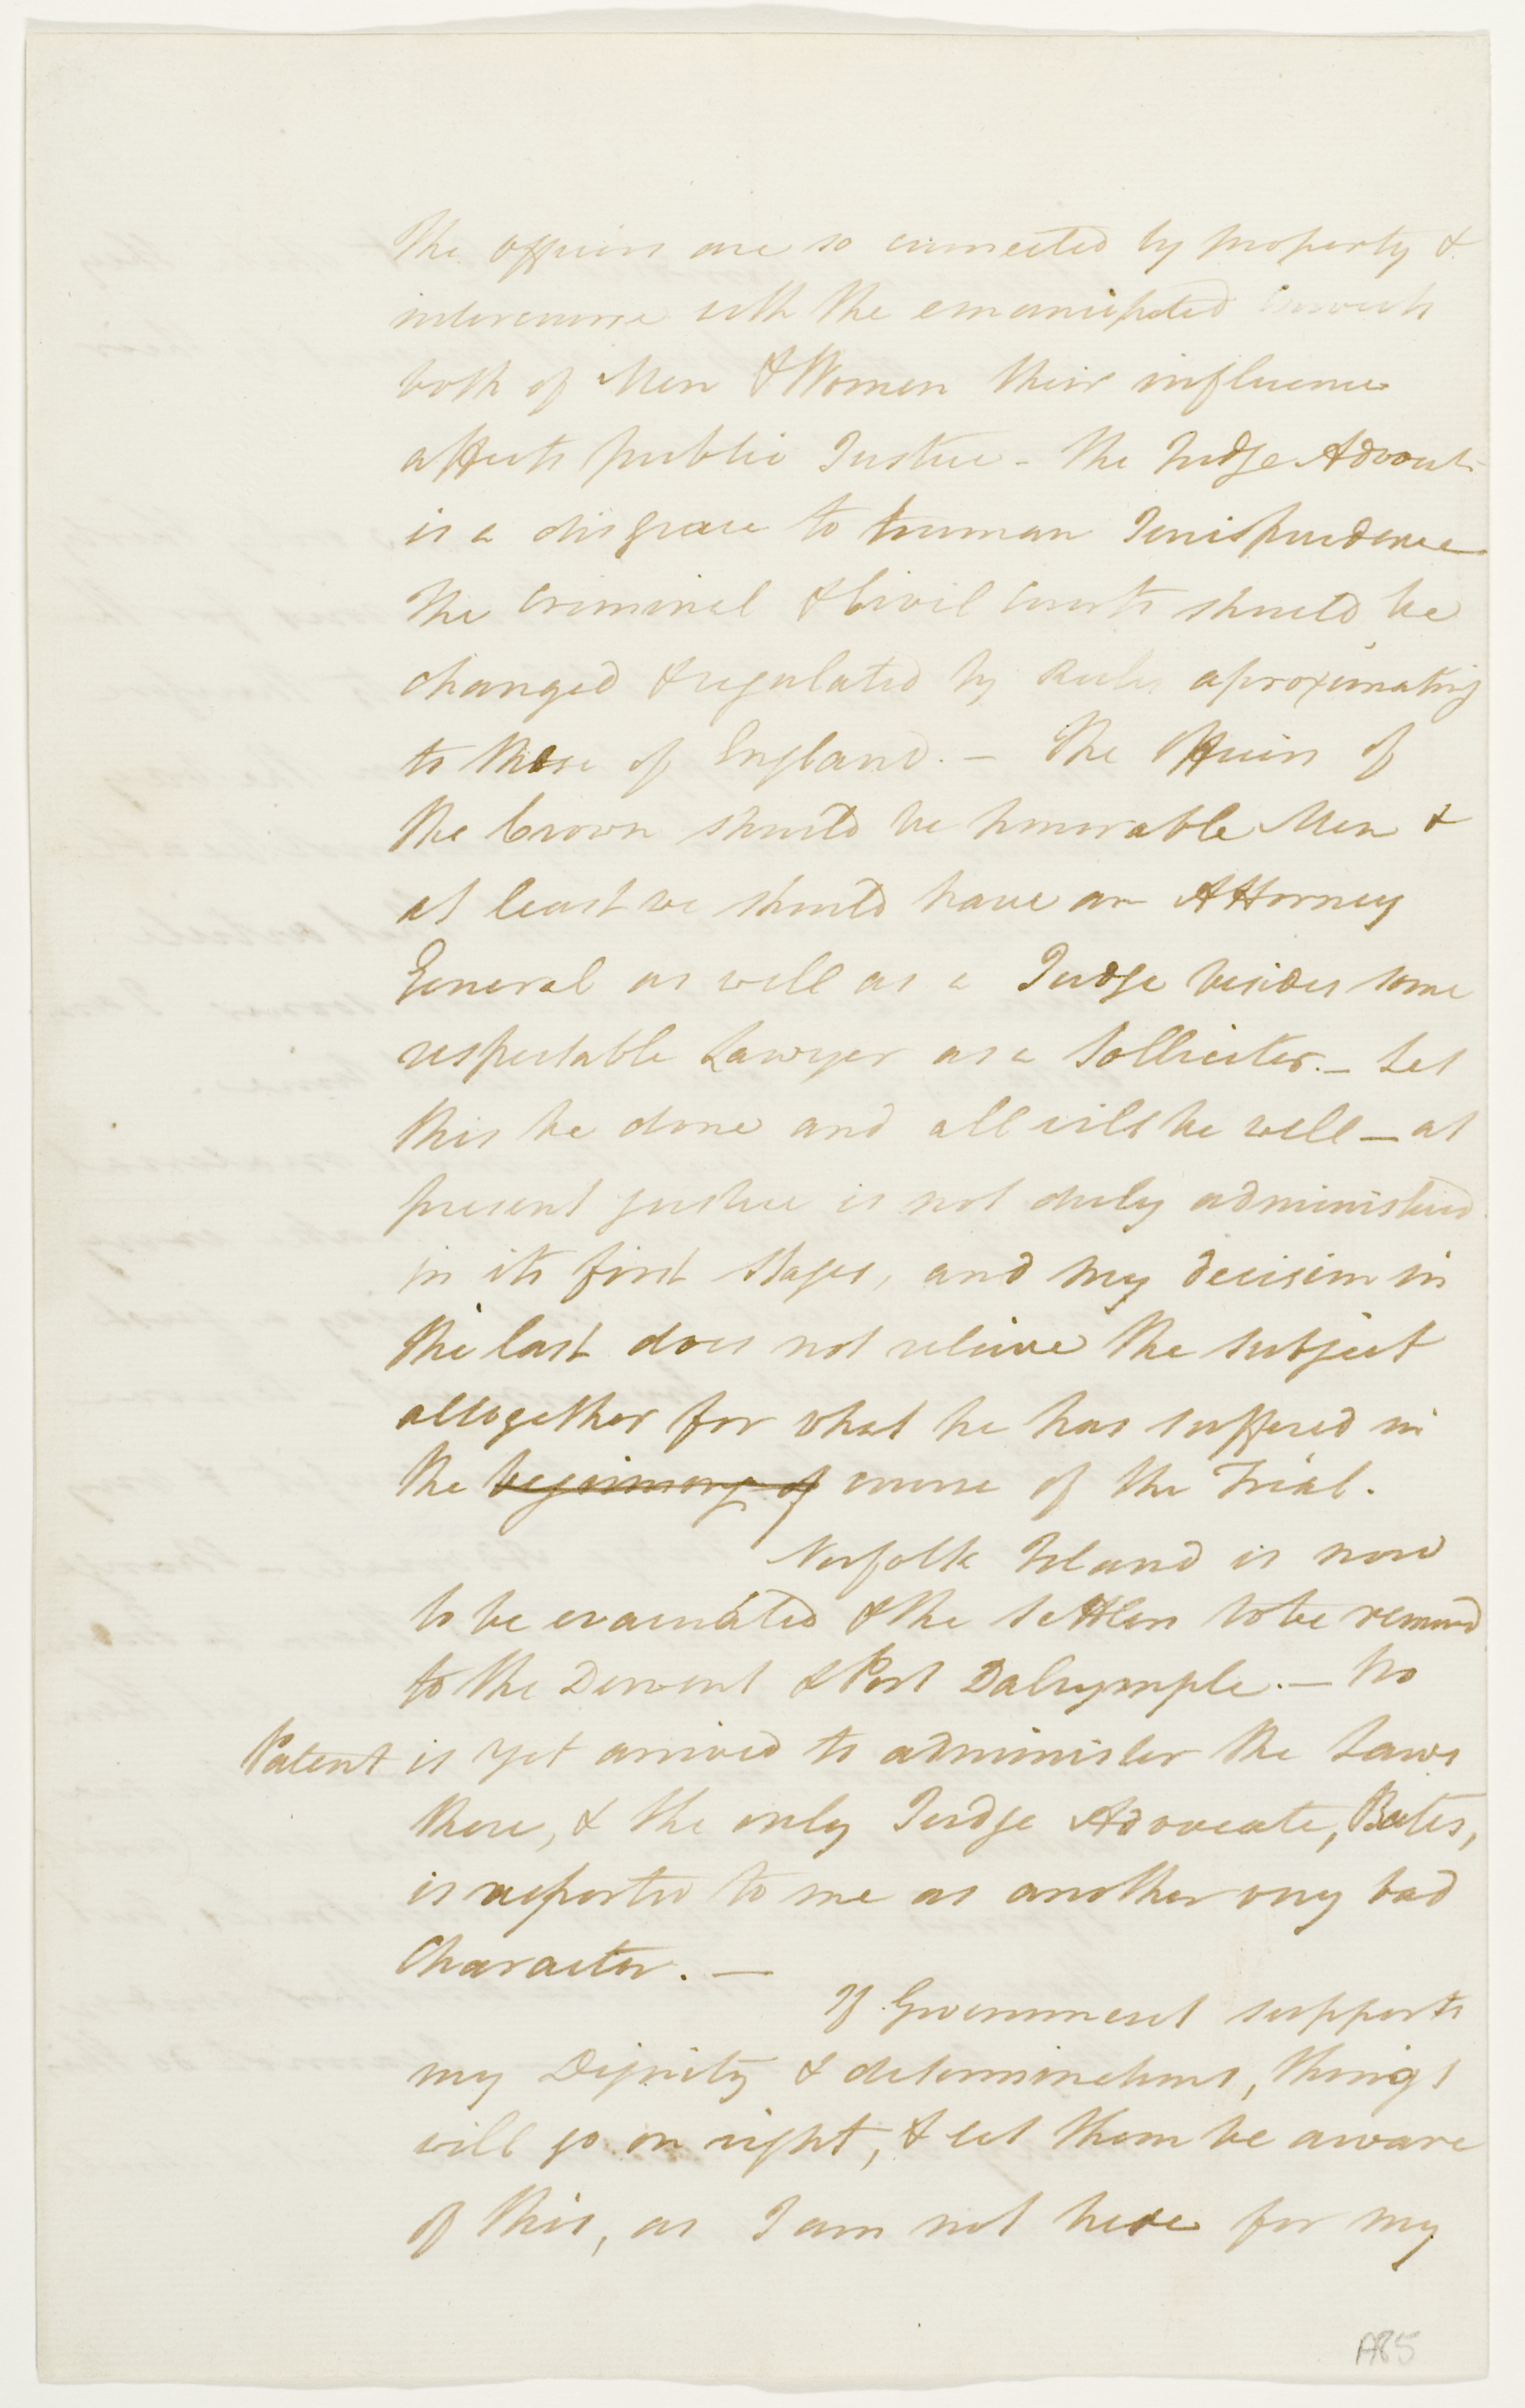 The officers are so connected by property &
intercourse with the emancipated Convicts
both of Men & Women their influence
affects public Justice - The Judge Advocate
is a disgrace to human Jurisprudence
The Criminal & Civil Courts should be
changed & regulated by Rules aproximating
to those of England. - The Officers of
the Crown should be honorable Men &
at least we should have an Attorney
General as well as a Judge besides some
respectable Lawyer as a Solliciter. - Let
this be done and all will be well - at
present justice is not duly administered
in its first stages, and my decision in
the last does not relieve the subject
alltogether for what he has suffered in
the beginning of course of the Trial.
Norfolk Island is now
to be evacuated & the settlers to be removed
to the Derwent & Port Dalrymple. - No
Patent is yet arrived to administer the Laws
there, & the only Judge Advocate, Bates,
is reported to me as another very bad
Character. -
If Government supports
my Dignity & determinations, things
will go on right, & let them be aware
of this, as I am not here for my
A85